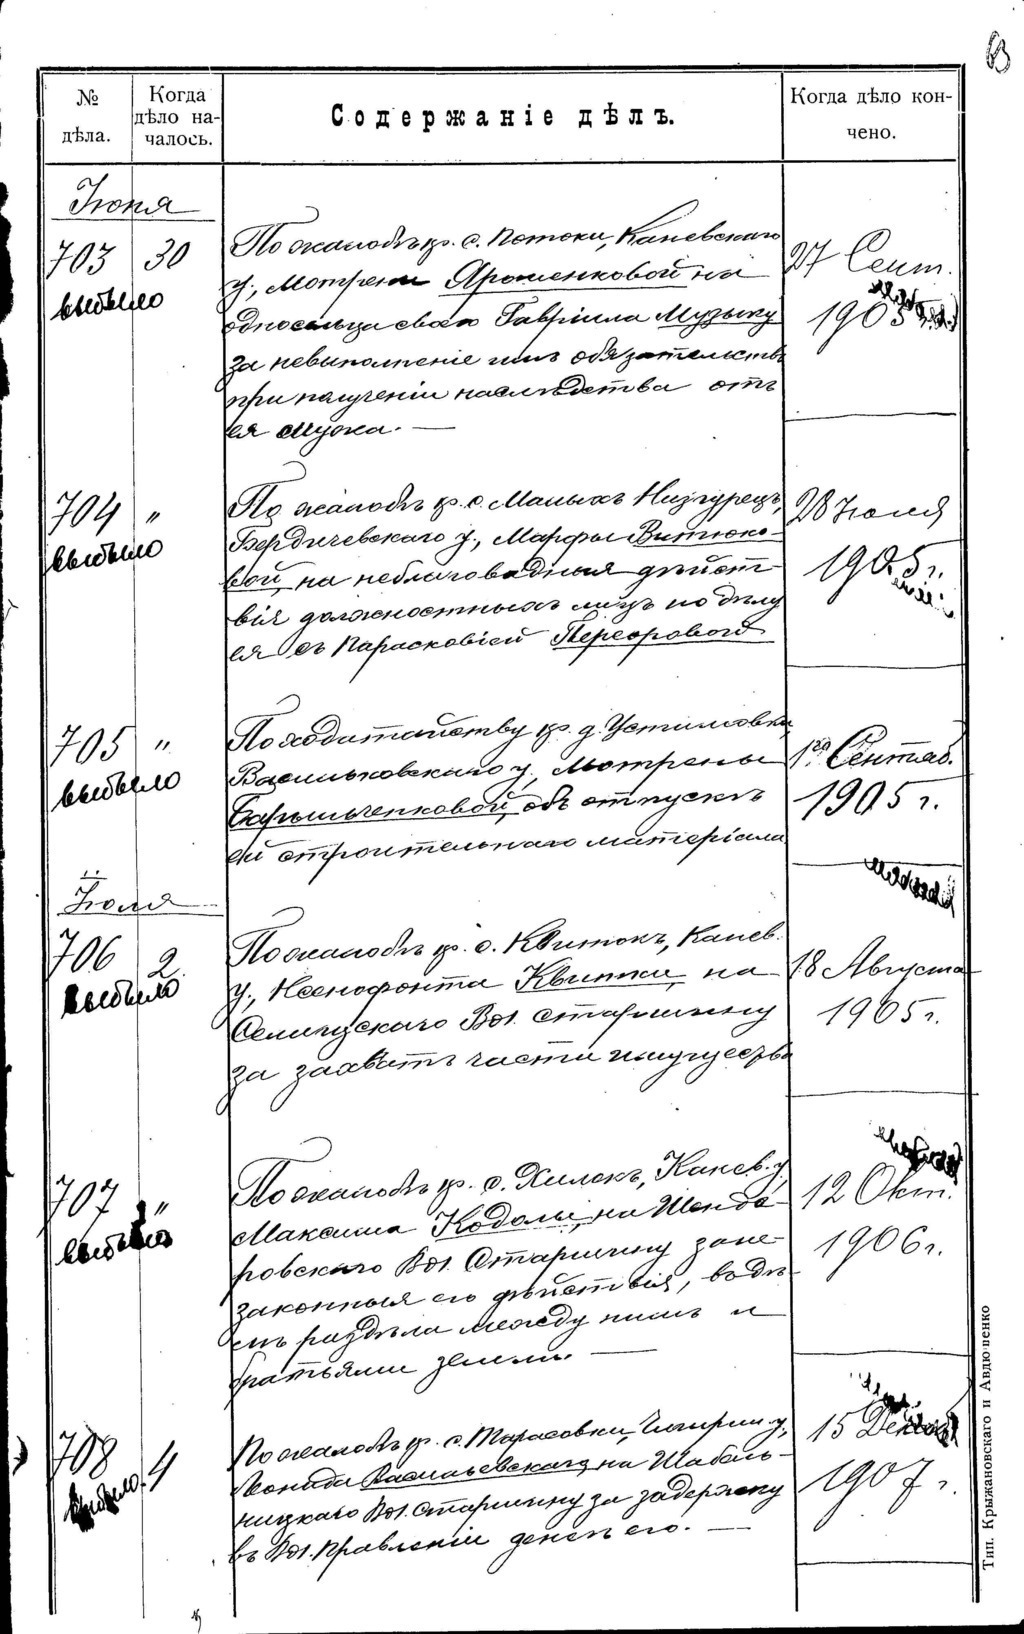 № дѣла.
Когда дѣло началось.
Содержаніе дѣлъ.
Когда дѣло кончено.
Іюня
703 30
выбыло
По жалобѣ кр. с. Потоки, Каневскаго
у., Мотрени Ярошенковой на
односельца своего Гавріила Музыку
за невыполненіе имъ обязательствъ
при полученіи наслѣдства отъ
ея мужа. —
27 Сент.
1905
704 "
выбыло
По жалобѣ кр. с. Малыхъ Низгурецъ,
Бердичевскаго у., Марфы Витюко-
вой, на неблаговидныя дѣйст-
вія должностныхъ лицъ по дѣлу
ея съ Парасковіей
28 Іюля
1905 г.
705 "
выбыло
По ходатайству кр. д. Устимовки,
Васильковскаго у., Мотрены
объ отпускѣ
ей строительнаго матеріала
1го Сентяб.
1905 г.
Іюля
706 2
выбыло
По жалобѣ кр. с. Квитокъ, Канев.
у., Ксенофонта Квитки, на
Селищскаго Вол. старшину
за захватъ части имущества
18 Августа
1905 г.
707 "
выбыло
По жалобѣ кр. с. Хилекъ, Канев. у.
Максима Кодолы, на Шенде-
ровскаго Вол. Старшину за не-
законныя его дѣйствія, въ дѣ-
лѣ раздѣла между нимъ и
братьями земли. —
12 Окт.
1906 г.
708 4
выбыло
По жалобѣ кр. с. Тарасовки, Чигирин. у.,
Леонида Васильевскаго, на Шабель-
ницкаго Вол. Старшину за задержку
въ Вол. Правленіи денегъ его. —
15 Декаб
1907 г.
Тип. Крыжановскаго и Авдюшенко